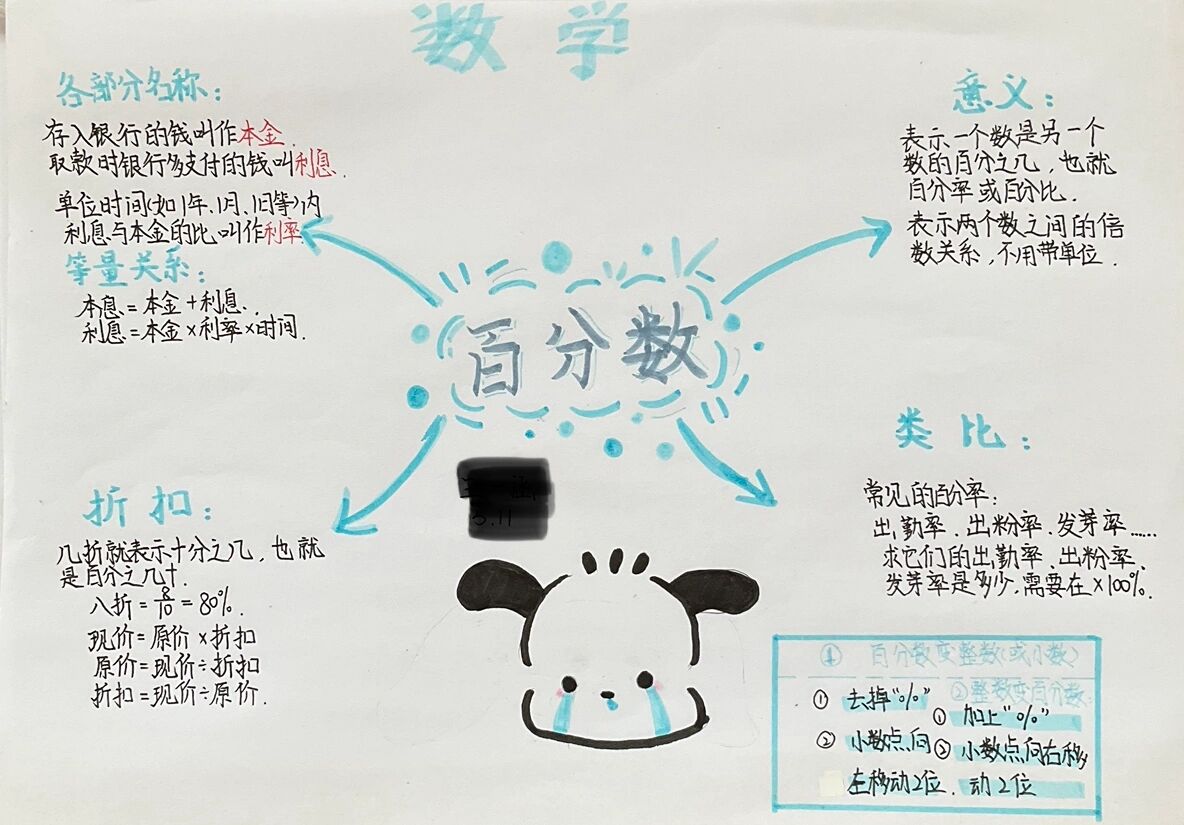 数学
各部分名称：
存入银行的钱叫作本金.
取款时银行多支付的钱叫利息.
单位时间(如1年、1月、1日等)内
利息与本金的比叫作利率.
等量关系：
本息=本金+利息.
利息=本金×利率×时间.
意义：
表示一个数是另一个
数的百分之几，也就
百分率或百分比.
表示两个数之间的倍
数关系，不用带单位.
百分数
折扣：
几折就表示十分之几，也就
是百分之几十.
八折=8/10=80%.
现价=原价×折扣
原价=现价÷折扣
折扣=现价÷原价.
5.11
类比：
常见的百分率：
出勤率、出粉率、发芽率……
求它们的出勤率、出粉率、
发芽率是多少，需要在×100%.
① 百分数变整数(或小数)
① 去掉"%"
② 小数点向
左移动2位.
②整数变百分数
① 加上"%"
② 小数点向右移
动2位